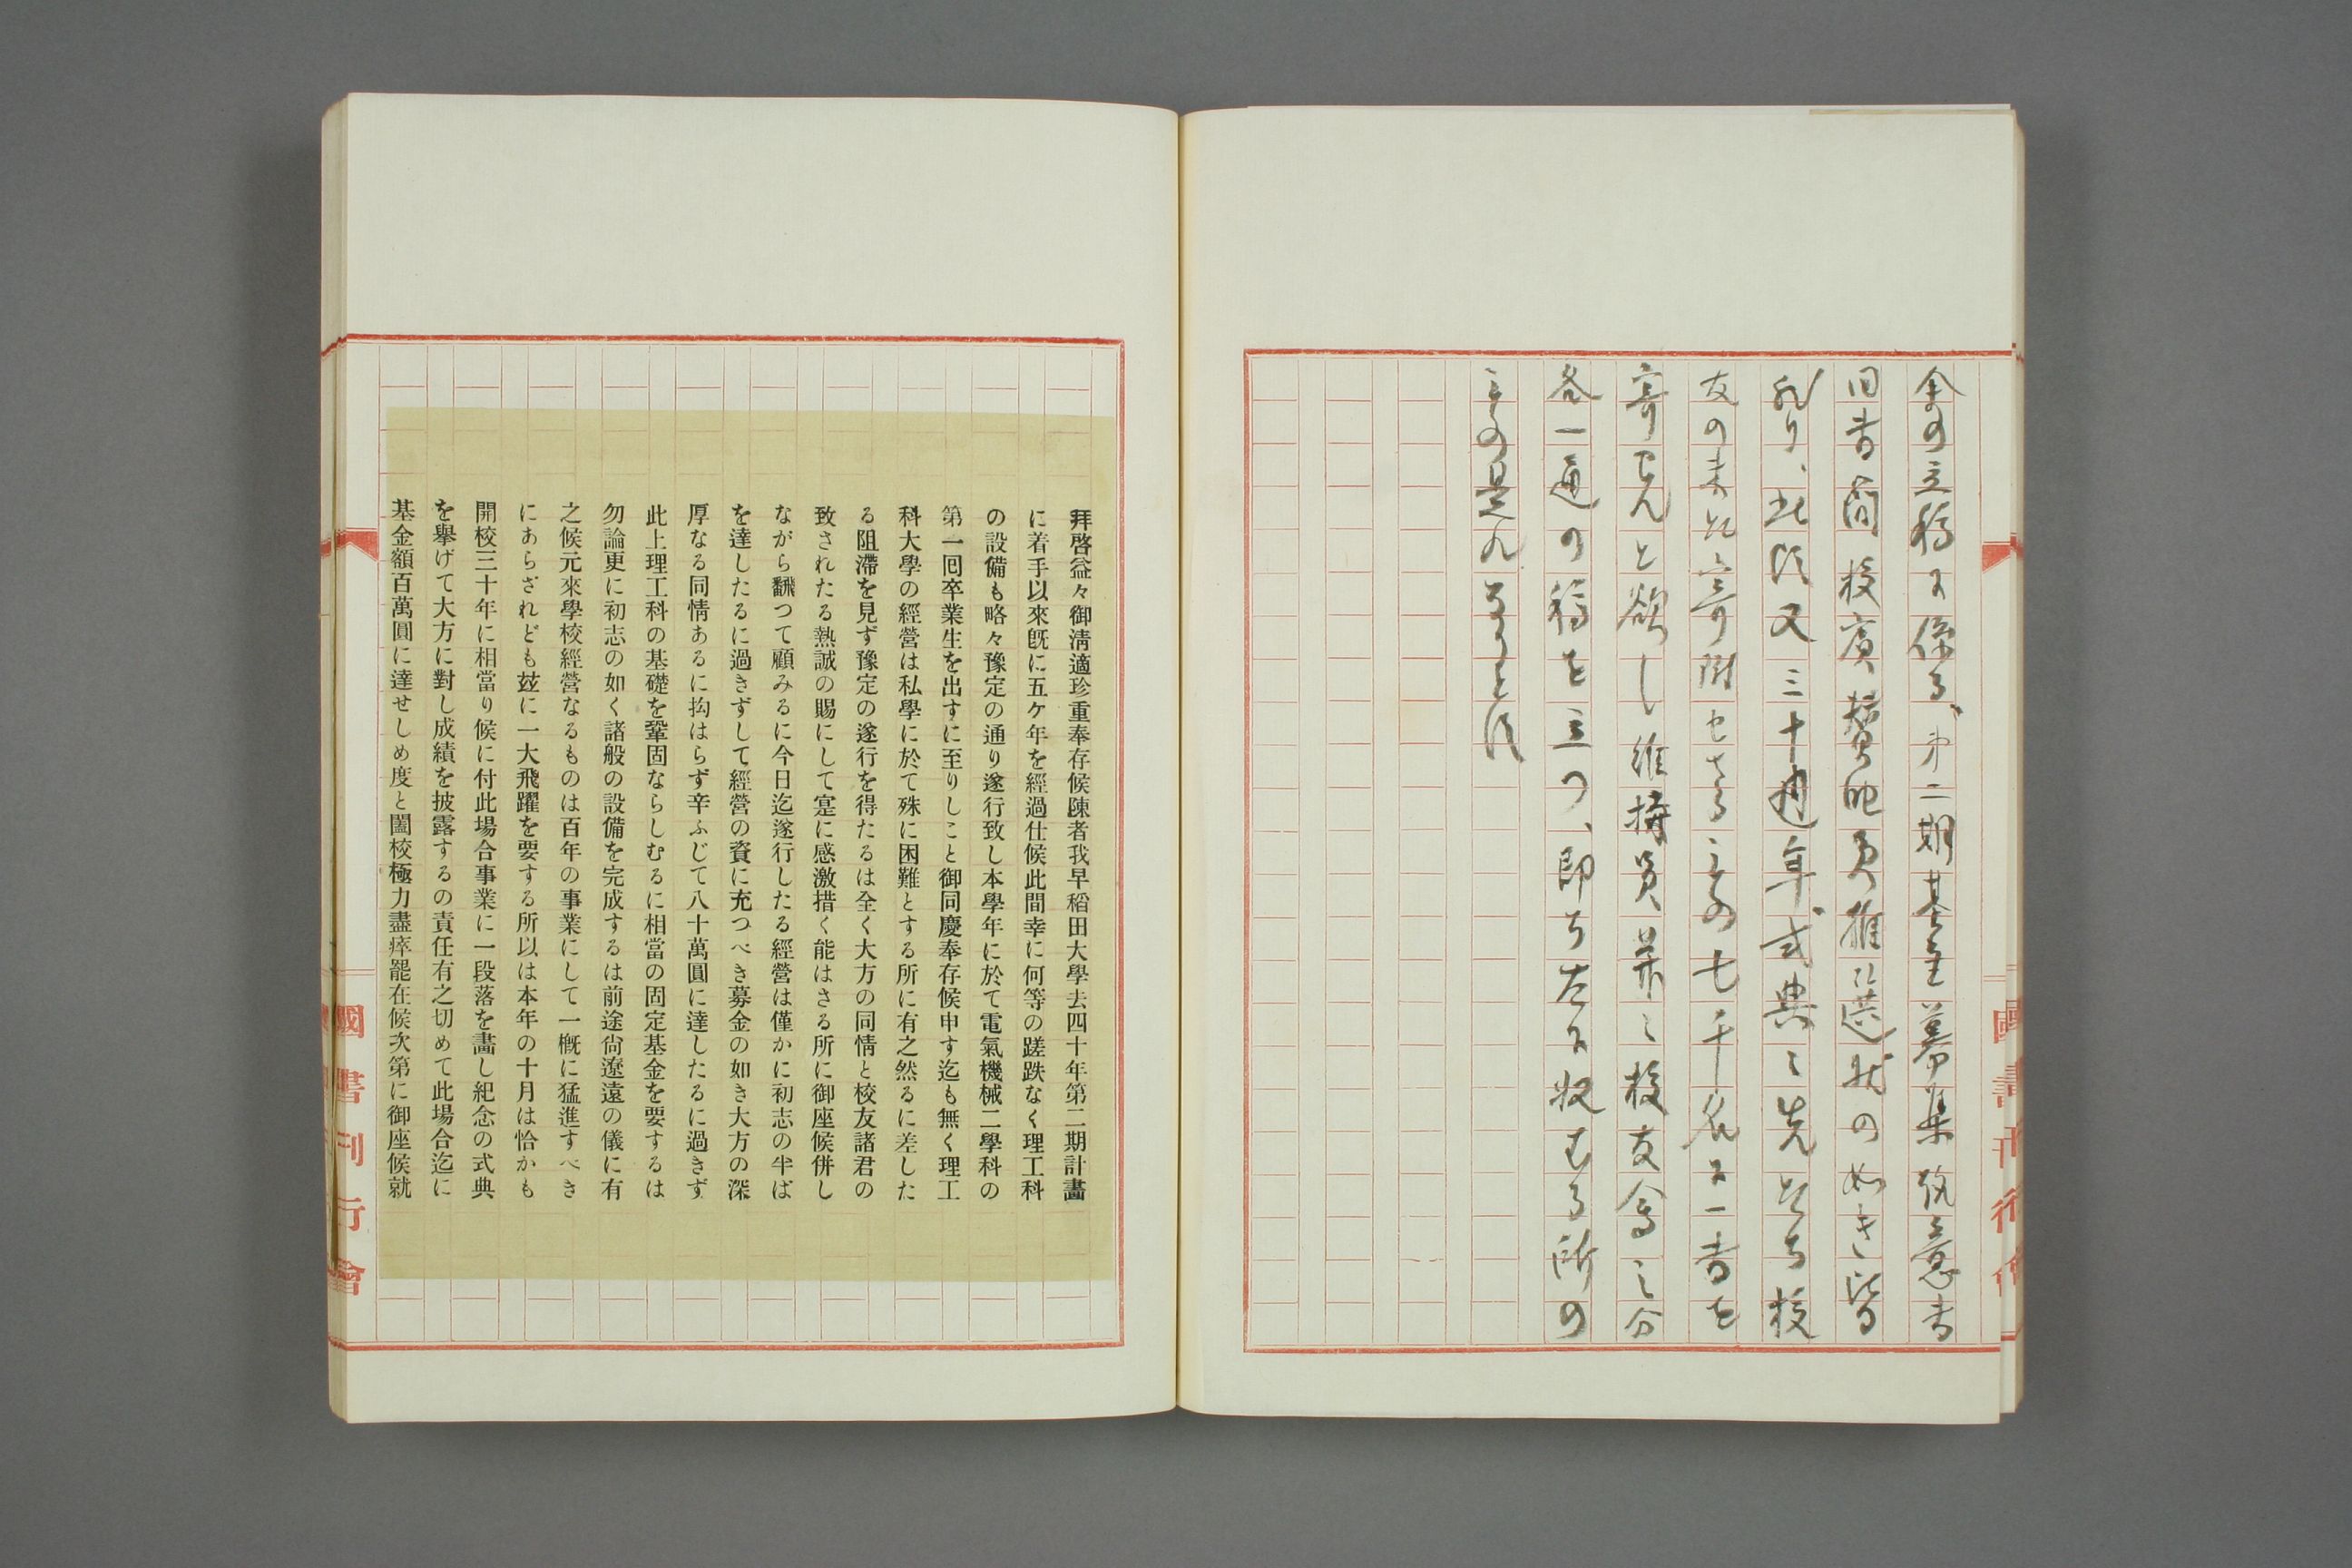 余の立稿に係る、第二期基金募集趣意書
回書簡校賓賛助員推選状の如き皆
然り、此頃又三十週年式典に先だち校
友の未だ寄附せざるもの七千名に一書を
寄せんと欲し維持員並に校友会の分
各一通の稿を立つ、即ち左に収むる所の
もの是れなりとす
拜啓益々御淸適珍重奉存候陳者我早稻田大學去四十年第二期計畫
に着手以來旣に五ケ年を經過仕候此間幸に何等の蹉跌なく理工科
の設備も略々豫定の通り遂行致し本學年に於て電氣機械二學科の
第一回卒業生を出すに至りしこと御同慶奉存候申す迄も無く理工
科大學の經營は私學に於て殊に困難とする所に有之然るに差した
る阻滯を見ず豫定の遂行を得たるは全く大方の同情と校友諸君の
致されたる熱誠の賜にして寔に感激措く能はさる所に御座候併し
ながら飜つて顧みるに今日迄遂行したる經營は僅かに初志の半ば
を達したるに過きずして經營の資に充つべき募金の如き大方の深
厚なる同情あるに拘はらず辛ふじて八十萬圓に達したるに過きず
此上理工科の基礎を鞏固ならしむるに相當の固定基金を要するは
勿論更に初志の如く諸般の設備を完成するは前途尙遼遠の儀に有
之候元來學校經營なるものは百年の事業にして一槪に猛進すべき
にあらざれども玆に一大飛躍を要する所以は本年の十月は恰かも
開校三十年に相當り候に付此場合事業に一段落を畵し紀念の式典
を擧げて大方に對し成績を披露するの責任有之切めて此場合迄に
基金額百萬圓に達せしめ度と闔校極力盡瘁罷在候次第に御座候就
國書刊行會